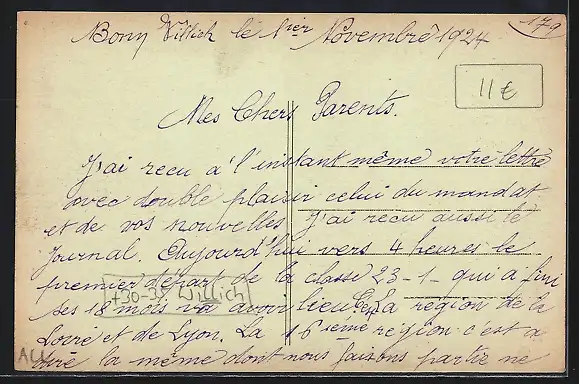 Bony Willich le 1ier Novembre 1924
179
11 €
Mes Chers Parents.
J'ai recu a l'instant même votre lettre
avec double plaisir celui du mandat
et de vos nouvelles J'ai recu aussi le
Journal. Aujourd'hui vers 4 heures le
premier départ de la classe 23-1- qui a fini
+30-3 Willich
ses 18 mois va avoir lieu La région de la
Loire et de Lyon. La 16ieme région c'est a
dire la même dont nous faisons partie ne